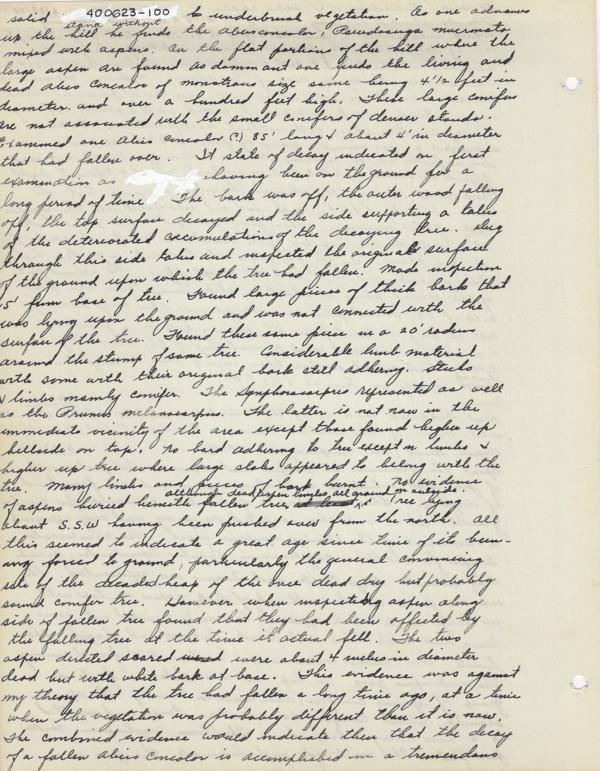 400623-100
solid stand without to underbrush vegetation. As one advances
up the hill he finds the Abies concolor, Pseudosuga mucronata
mixed with aspens. On the flat portion of the hill where the
large aspen are found as dominant one finds the living and
dead Abies concolor of monstrous size some being 4 1/2 feet in
diameter and over a hundred feet high. These large conifers
are not associated with the small conifers of denser stands.
Examined one Abies Concolor (?) 85' long & about 4' in diameter
that had fallen over. It state of decay indicated on first
examination as having been on the ground for a
long period of time. The bark was off, the outer wood falling
off, the top surface decayed and the side supporting a talus
of the deteriorated accumulations of the decaying tree. Dug
through this side talus and inspected the original surface
of the ground upon which the tree had fallen. Made inspection
15' from base of tree. Found large pieces of thick bark that
was lying upon the ground and was not connected with the
surface of the tree. Found these same piece in a 20' radius
around the stump of same tree. Considerable limb material
with some with their original bark still adhering. Sticks
& limbs mainly conifer. The Symphoricarpos represented as well
as the Prunus melanocarpus. The latter is not now in the
immediate vicinity of the area except those found higher up
hillside on top. No bark adhering to tree except in limbs &
higher up tree where large slabs appeared to belong with the
tree. Many limbs and pieces of bark burnt. No evidence
of aspens buried beneath fallen tree although dead aspen limbs all around on outside. Tree lying
about S.S.W having been pushed over from the north. All
this seemed to indicate a great age since time of its been-
ing forced to ground, particularly the general convincing
side of the decaded heap of the once dead dry but probably
sound conifer tree. However when inspecting aspen along
side of fallen tree found that they had been affected by
the falling tree at the time it actual fell. The two
aspen dented scared were about 4 inches in diameter
dead but with white bark at base. This evidence was against
my theory that the tree had fallen a long time ago, at a time
when the vegetation was probably different than it is now.
The combined evidence would indicate then that the decay
of a fallen Abies concolor is accomplished in a tremendous